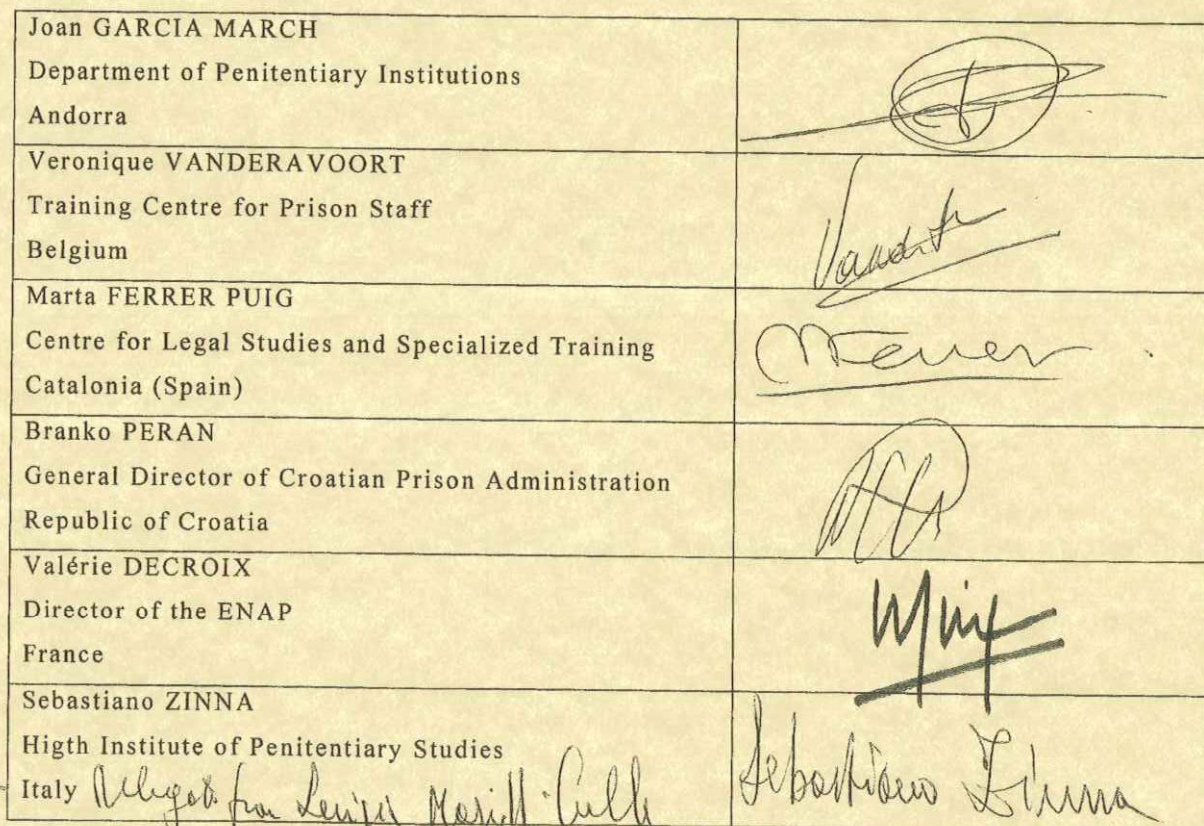 Joan GARCIA MARCH
Department of Penitentiary Institutions
Andorra
Veronique VANDERAVOORT
Training Centre for Prison Staff
Belgium
Marta FERRER PUIG
Centre for Legal Studies and Specialized Training
Catalonia (Spain)
Branko PERAN
General Director of Croatian Prison Administration
Republic of Croatia
Valérie DECROIX
Director of the ENAP
France
Sebastiano ZINNA
Higth Institute of Penitentiary Studies
Italy
Sebastiano Zinna